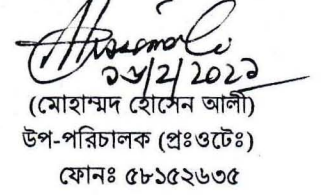 (মোহাম্মদ হোসেন আলী)
উপ-পরিচালক (প্রঃওটেঃ)
ফোনঃ ৫৮১৫২৬৩৫